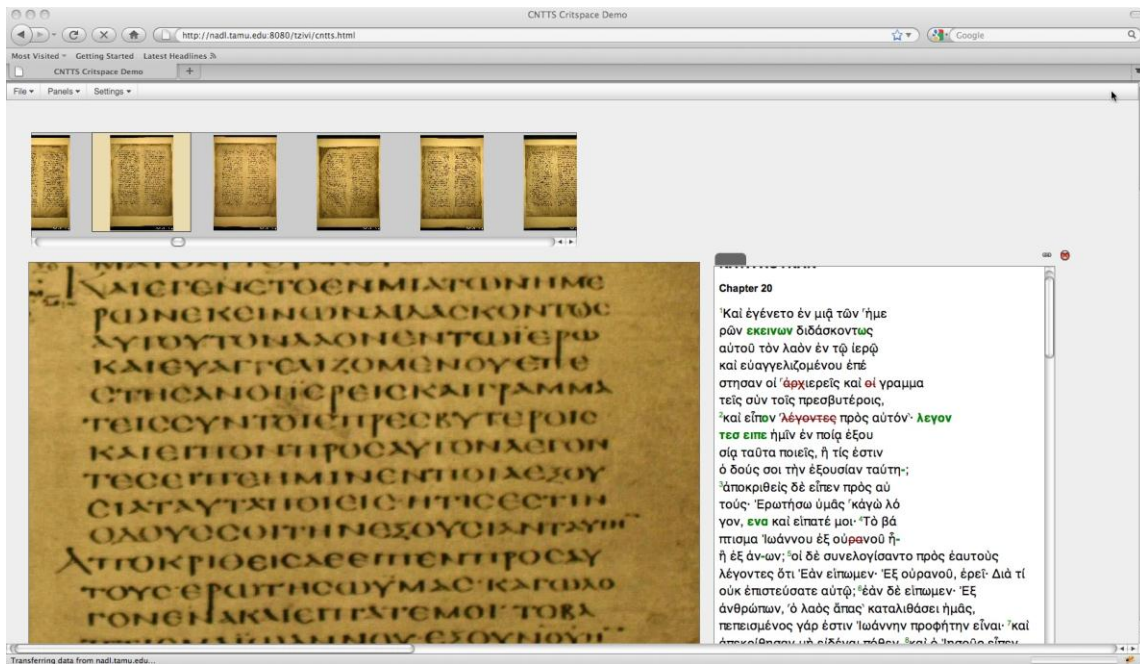 CNTTS Critspace Demo
http://nadl.tamu.edu:8080/tzivi/cntts.html
Google
Most Visited Getting Started Latest Headlines
CNTTS Critspace Demo
File Panels Settings
ΚΑΙΕΓΕΝΕΤΟΕΝΜΙΑΤΩΝΗΜΕ
ΡΩΝΕΚΕΙΝΩΝΔΙΔΑϹΚΟΝΤΟϹ
ΑΥΤΟΥΤΟΝΛΑΟΝΕΝΤΩΪΕΡΩ
ΚΑΙΕΥΑΓΓΕΛΙΖΟΜΕΝΟΥΕΠΕ
ϹΤΗϹΑΝΟΙΪΕΡΕΙϹΚΑΙΓΡΑΜΜΑ
ΤΕΙϹϹΥΝΤΟΙϹΠΡΕϹΒΥΤΕΡΟΙϹ
ΚΑΙΕΙΠΟΝΠΡΟϹΑΥΤΟΝΛΕΓΟΝ
ΤΕϹΕΙΠΕΗΜΙΝΕΝΠΟΙΑΕΞΟΥ
ϹΙΑΤΑΥΤΑΠΟΙΕΙϹ·ΗΤΙϹΕϹΤΙΝ
ΟΔΟΥϹϹΟΙΤΗΝΕΞΟΥϹΙΑΝΤΑΥΤΗ
ΑΠΟΚΡΙΘΕΙϹΔΕΕΙΠΕΝΠΡΟϹΑΥ
ΤΟΥϹ·ΕΡΩΤΗϹΩΫΜΑϹ·ΚΑΓΩΛΟ
ΓΟΝΕΝΑΚΑΙΕΙΠΑΤΕΜΟΙ·ΤΟΒΑ
Chapter 20
¹Καὶ ἐγένετο ἐν μιᾷ τῶν ʽἡμε
ρῶν εκεινων διδάσκοντως
αὐτοῦ τὸν λαὸν ἐν τῷ ἱερῷ
καὶ εὐαγγελιζομένου ἐπέ
στησαν οἱ ʽἀρχιερεῖς καὶ οἱ γραμμα
τεῖς σὺν τοῖς πρεσβυτέροις,
²καὶ εἶπον ʽλέγοντες πρὸς αὐτόν·̓ λεγον
τεσ ειπε ἡμῖν ἐν ποίᾳ ἐξου
σίᾳ ταῦτα ποιεῖς, ἢ τίς ἐστιν
ὁ δούς σοι τὴν ἐξουσίαν ταύτη-;
³ἀποκριθεὶς δὲ εἶπεν πρὸς αὐ
τούς· Ἐρωτήσω ὑμᾶς ʽκἀγὼ λό
γον, ενα καὶ εἴπατέ μοι· ⁴Τὸ βά
πτισμα Ἰωάννου ἐξ οὐρανοῦ ἦ-
ἢ ἐξ ἀν-ων; ⁵οἱ δὲ συνελογίσαντο πρὸς ἑαυτοὺς
λέγοντες ὅτι Ἐὰν εἴπωμεν· Ἐξ οὐρανοῦ, ἐρεῖ· Διὰ τί
οὐκ ἐπιστεύσατε αὐτῷ; ⁶ἐὰν δὲ εἴπωμεν· Ἐξ
ἀνθρώπων, ʽὁ λαὸς ἅπας̓ καταλιθάσει ἡμᾶς,
πεπεισμένος γάρ ἐστιν Ἰωάννην προφήτην εἶναι· ⁷καὶ
ἀπεκρίθησαν μὴ εἰδέναι πόθεν. ⁸καὶ ὁ Ἰησοῦς εἶπεν
Transferring data from nadl.tamu.edu...